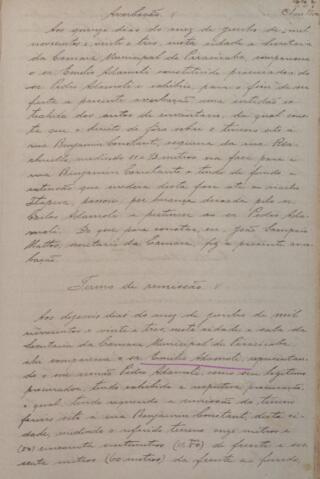 Averbação
Aos quinze dias do mez de junho de mil
novecentos e vinte e tres, nesta cidade e secretaria
da Camara Municipal de Piracicaba, compareceu
o sr. Emilio Adamoli constituido procurador do
sr. Pedro Adamoli e exhibiu, para o fim de ser
feita a presente averbação uma certidão ex-
trahida dos autos de inventario, da qual cons-
ta que o direito de fôro sobre o terreno sito á
rua Benjamin Constant, esquina da rua
medindo 11 e 13 metros na face para a
rua Benjamin Constant e tendo de fundo a
extensão que medeia desta face até ao riacho
Itapeva, passou, por herança deixada pelo sr.
Carlos Adamoli a pertencer ao sr. Pedro Ada-
moli. Do que para constar, eu, João Sampaio
Mattos, secretario da Camara, fiz a presente aver-
bação.
Termo de remissão
Aos dezoito dias do mez de junho de mil
novecentos e vinte e tres, nesta cidade e sala da
Secretaria da Camara Municipal de Piracicaba
ahi compareceu o sr. Emilio Adamoli, representan-
do o sr. Pedro Adamoli, como seu legitimo
procurador, tendo exhibido a respectiva procuração,
o qual tendo requerido a remissão do terreno
foreiro sito á rua Benjamin Constant, desta ci-
dade, medindo o referido terreno onze metros e
cincoenta centimetros de frente e ses-
senta metros (60 metros) da frente ao fundo,